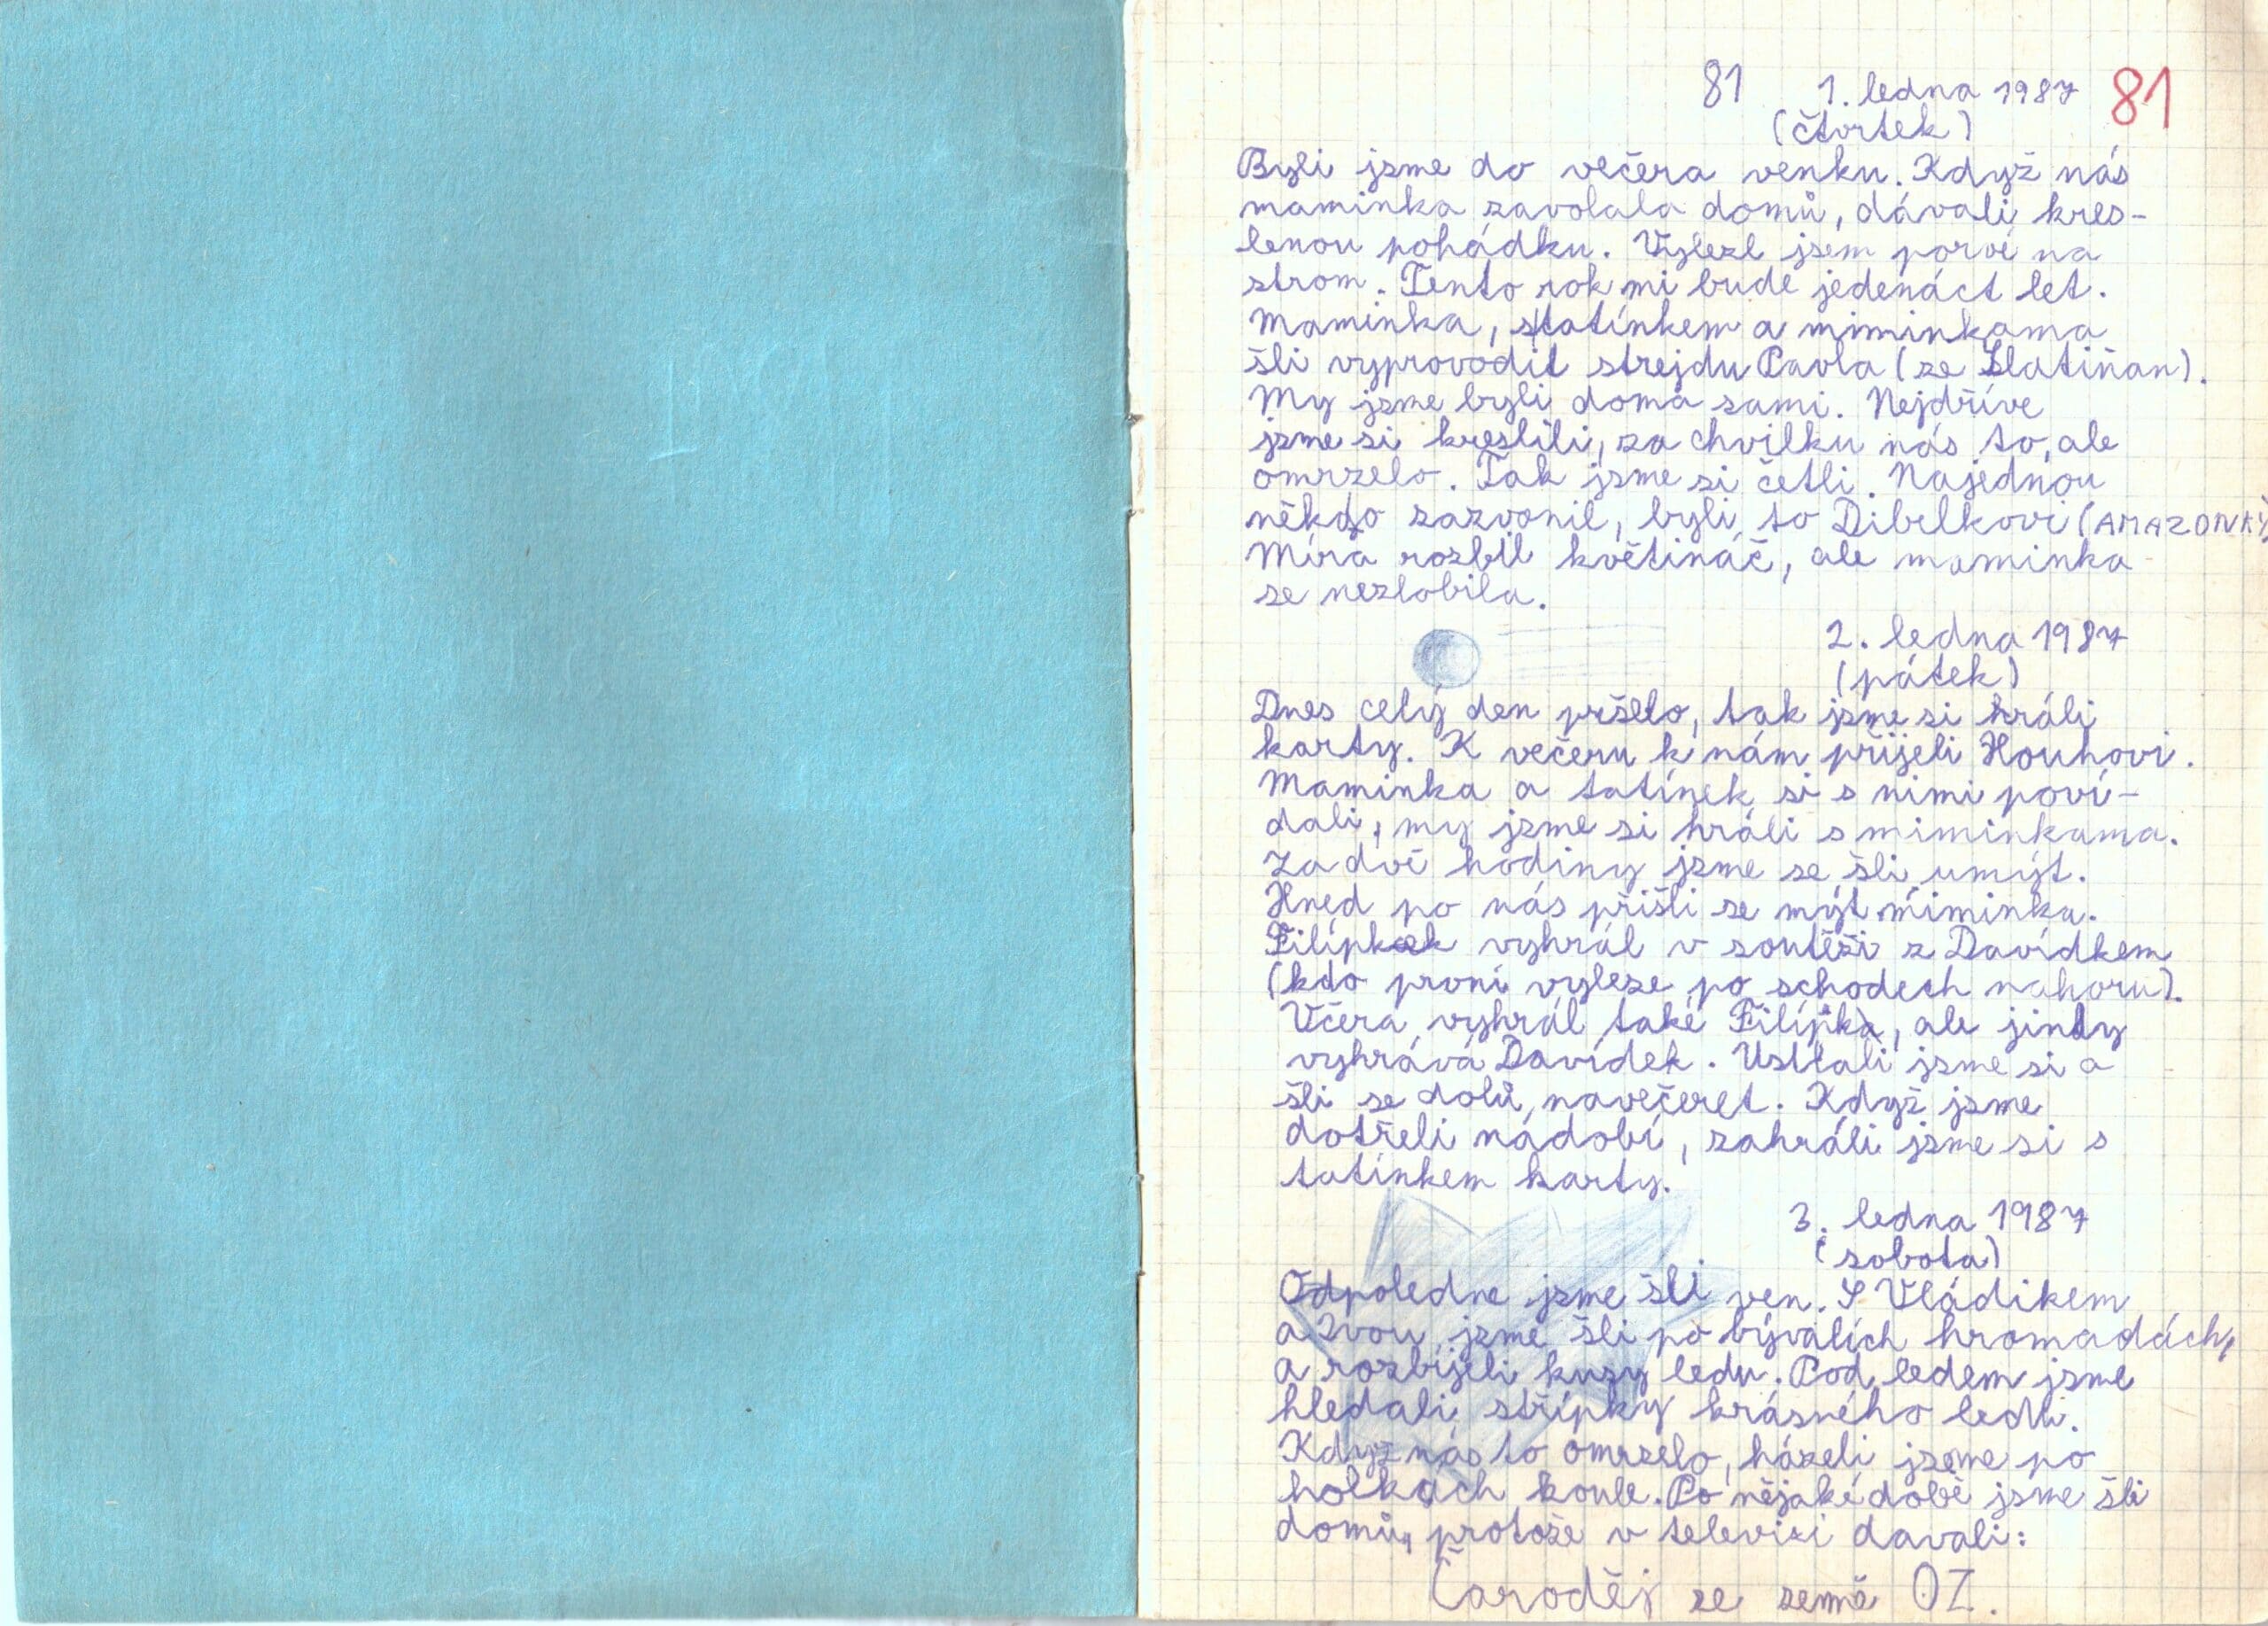 81 1. ledna 1987 81
(čtvrtek)
Byli jsme do večera venku. Když nás
maminka zavolala domů, dávali kres-
lenou pohádku. Vylezl jsem prvé na
strom. Tento rok mi bude jedenáct let.
Maminka, s tatínkem a miminkama
šli vyprovodit strejdu Pavla (ze Slatiňan).
My jsme byli doma sami. Nejdříve
jsme si kreslili, za chvilku nás to, ale
omrzelo. Tak jsme si četli. Najednou
někdo zazvonil, byli to Dibelkovi (AMAZONKY)
Míra rozbil květináč, ale maminka
se nezlobila.
2. ledna 1987
(pátek)
Dnes celý den pršelo, tak jsme si hráli
karty. K večeru k nám přijeli Houhovi.
Maminka a tatínek si s nimi poví-
dali, my jsme si hráli s miminkama.
Za dvě hodiny jsme se šli umýt.
Hned po nás přišli se mýt miminka.
Filípek vyhrál v soutěži z Davídkem
(kdo první vyleze po schodech nahoru).
Včera vyhrál také Filípka, ale jindy
vyhrává Davídek. Ustlali jsme si a
šli se dolů navečeret. Když jsme
dotřeli nádobí, zahráli jsme si s
tatínkem karty.
3. ledna 1987
(sobota)
Odpoledne jsme šli ven. S Vláďikem
a Ivou jsme šli po bývalích hromadách,
a rozbíjeli kusy ledu. Pod ledem jsme
hledali střípky krásného ledu.
Když nás to omrzelo, házeli jsme po
holkách koule. Po nějaké době jsme šli
domů, protože v televizi davali:
Čaroděj ze země OZ.